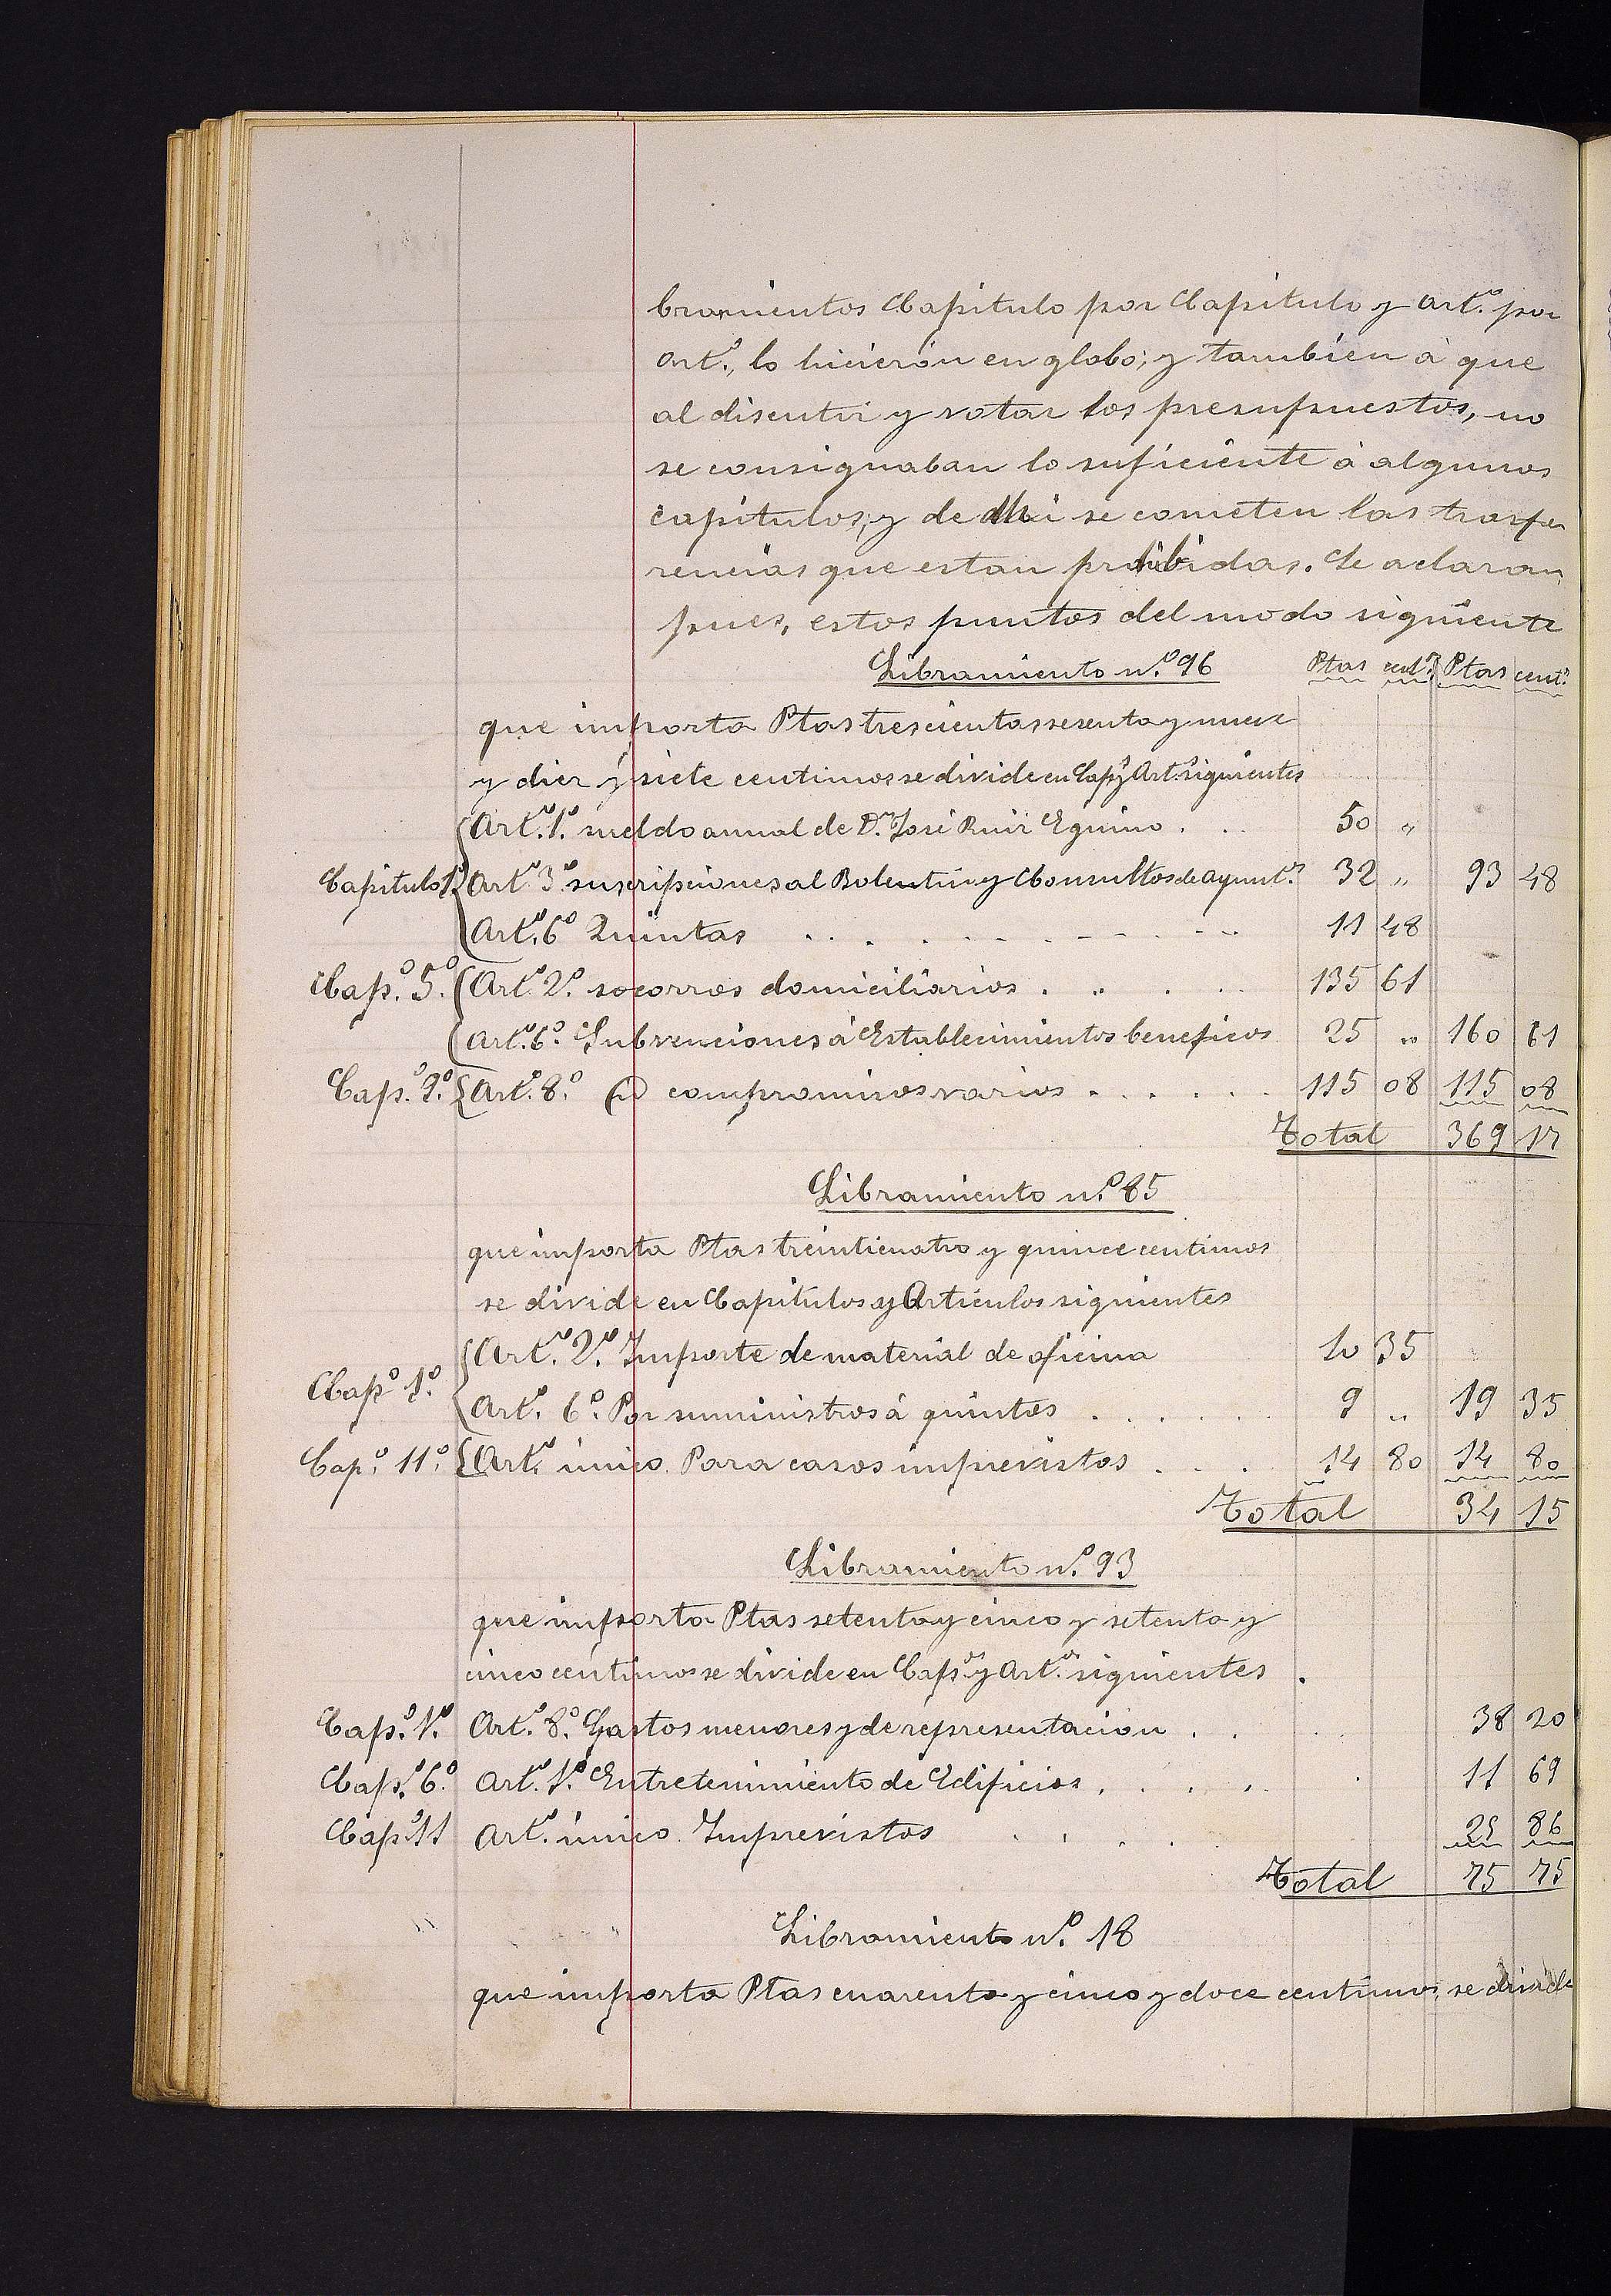 bramientos Capitulo por Capitulo y Artº. por
Artº., lo hicierón en globo; y tambien á que
al discutir y votar los presupuestos, no
se consignaban lo suficiente á algunos
capitulos; y de ahi se cometen las trasfe
rencias que estan prohibidas. Se aclaran
pues, estos puntos del modo siguiente
Libramiento nº. 96 Ptas centˢ. Ptas centˢ.
que importa Ptas trescientas sesenta y nueve
y diez y siete centimos se divide en Capˢ. y Artˢ. siguientes
Artº. 1º. sueldo annal de Dⁿ. José Ruiz Eguino . . . 50 „
Capitulo 1º. Artº. 3º. suscripciones al Boletin y Consultos de ayuntºˢ. 32 „ 93 48
Artº. 6º Quintas . . . . . . . . . 11 48
Capº. 5º. Artº. 2º. socorros domiciliarios . . . . . 135 61
Artº. 6º. Subvenciones á Establecimientos beneficos 25 „ 160 61
Capº. 9º. Artº. 8º. compromisos varios . . . . . . 115 08 115 08
Total 369 17
Libramiento nº. 85
que importa Ptas treinticuatro y quince centimos
se divide en Capitulos y Articulos siguientes
Artº. 2º. Importe de material de oficina 10 35
Capº 1º.
Artº. 6º. Por suministros á quintos . . . . . . 9 „ 19 35
Capº. 11º. Artº. único. Para casos imprevistos . . . 14 80 14 80
Total 34 15
Libramiento nº. 93
que importa Ptas setenta y cinco y setenta y
cinco centimos se divide en Capˢ. y Artˢ. siguientes .
Capº. 1º. Artº. 8º. Gastos menores y de representacion . . 38 20
Capº. 6º. Artº. 1º. Entretenimiento de Edificios . . . . . 11 69
Capº 11 Artº. único. Imprevistos . . . . 25 86
Total 75 75
Libramiento nº. 18
que importa Ptas cuarenta y cinco y doce centimos, se divide